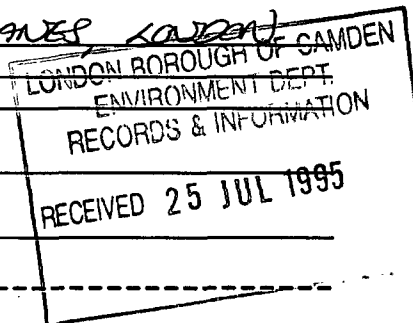 LONDON
LONDON BOROUGH OF CAMDEN
ENVIRONMENT DEPT.
RECORDS & INFORMATION
RECEIVED 25 JUL 1995